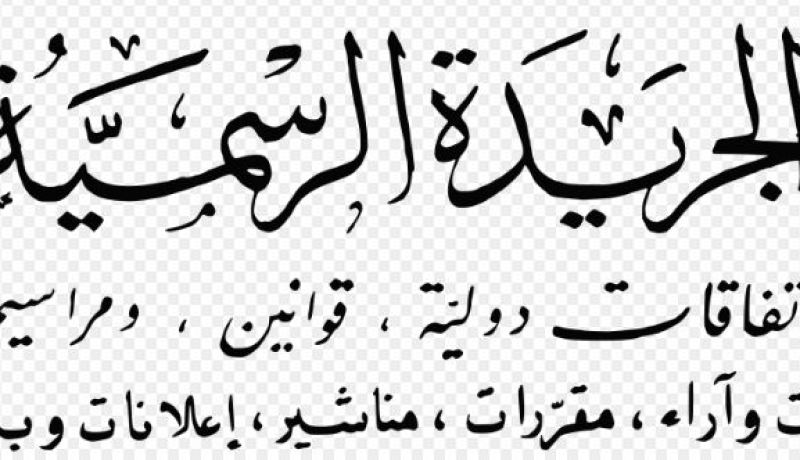 الجريدة الرسميّة
اتفاقات دوليّة ، قوانين ، ومراسيم
وآراء ، مقرّرات ، مناشير ، إعلانات وب